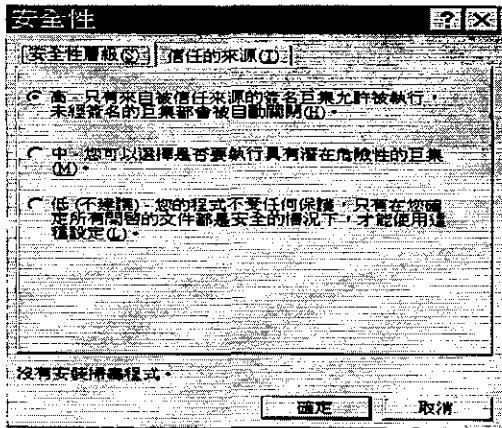 安全性
安全性層級(S) 信任的來源(T)
高 - 只有來自被信任來源的簽名巨集允許被執行，
未經簽名的巨集都會被自動關閉(H)。
中 - 您可以選擇是否要執行具有潛在危險性的巨集
(M)。
低 (不建議) - 您的程式不受任何保護，只有在您確
定所有開啟的文件都是安全的情況下，才能使用這
種設定(L)。
沒有安裝掃毒程式。
確定 取消